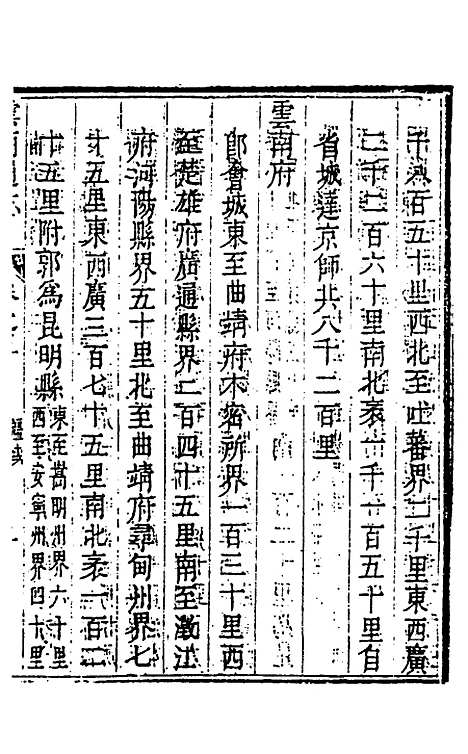 千八百五十里西北至吐蕃界二千里東西廣
二千二百六十里南北袤一千一百五十里自
省城達京師共八千二百里
雲南府
即會城東至曲靖府木密所界一百三十里西
至楚雄府廣通縣界二百四十五里南至澂江
府河陽縣界五十里北至曲靖府尋甸州界七
十五里東西廣三百七十五里南北袤一百二
十五里附郭為昆明縣東至嵩明州界六十里
西至安寧州界四十里
雲南通志
疆域